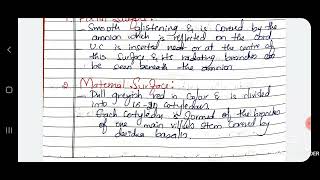 1. Foetal Surface :-
- Smooth glistening & is covered by the
amnion which is reflected on the cord
U.C is inserted near or at the centre of
this surface & its radiating branches can
be seen beneath the amnion.
2. Maternal Surface :-
- Dull greyish red in color & is divided
into 15-20 cotyledons
- Each cotyledon is formed of the branches
of one main villus stem covered by
decidua basalis.